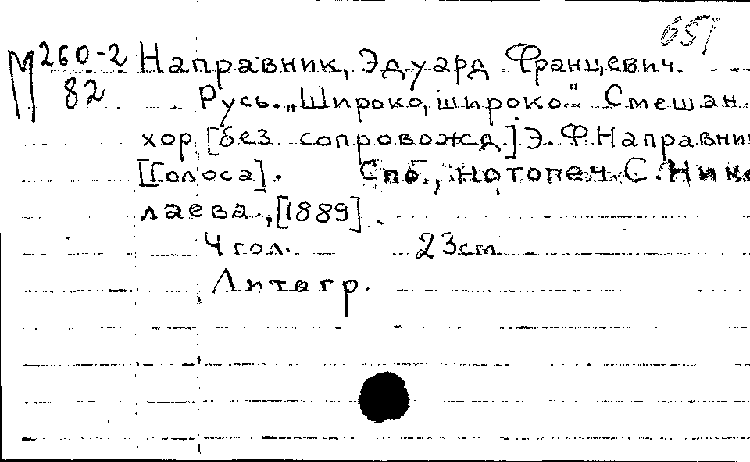 651
М 260-2 Направник, Эдуард Францевич.
82 Русь. "Широко, широко." Смешан.
хор [без сопровожд.] Э. Ф. Направник
[Голоса]. Спб., нотопеч. С. Нико
лаева, [1889].
4 гол. 23 cm
Литогр.